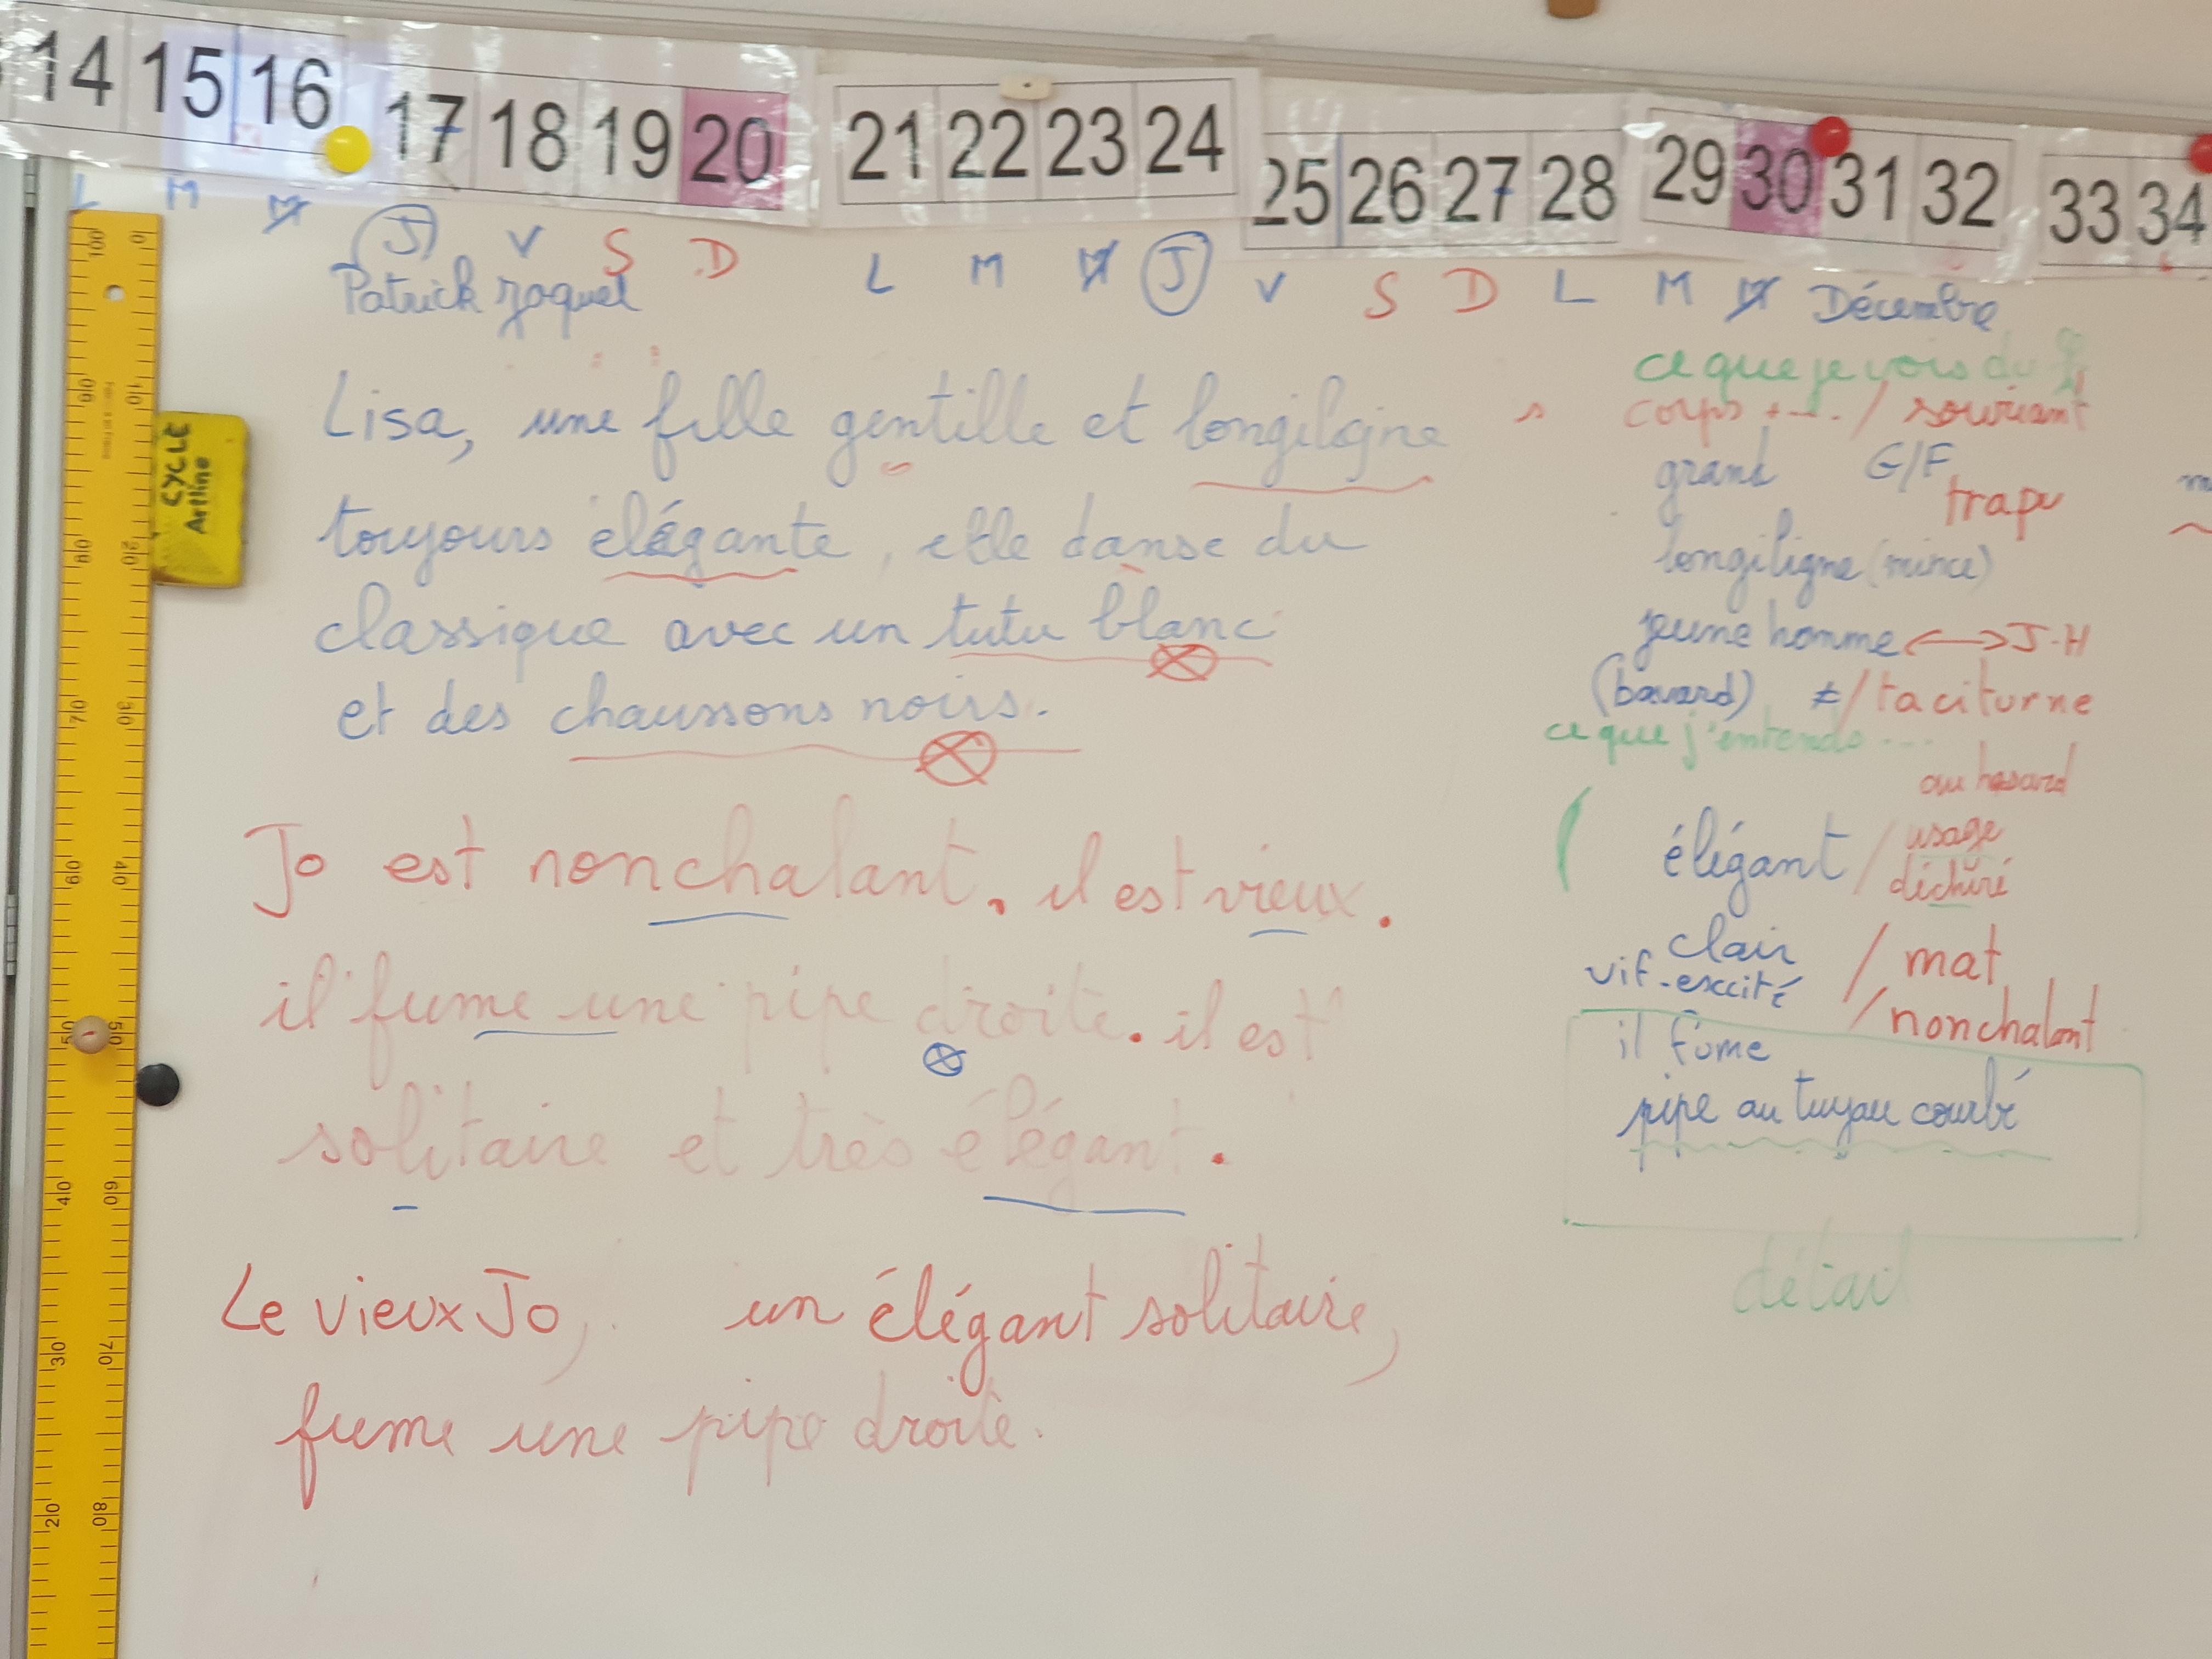 14 15 16 17 18 19 20 21 22 23 24 25 26 27 28 29 30 31 32 33 34
L M M J V S D L M M J V S D L M M Décembre
Patrick
Lisa, une fille gentille et longiligne
toujours élégante, elle danse du
classique avec un tutu blanc
et des chaussons noirs.
Jo est nonchalant. il est vieux.
il fume une pipe droite. il est
solitaire et très élégant.
Le vieux Jo, un élégant solitaire,
fume une pipe droite.
ce que je vois du
corps + - . / souriant
grand G/F
trapu
longiligne (mince)
jeune homme <-> J-H
(bavard) ≠/ taciturne
ce que j'entends ...
au hasard
élégant / usagé
déchiré
clair / mat
vif-excité / nonchalant
il fume
pipe au tuyau courbé
détail
CYCLE
Artline
100 90 80 70 60 50 40 30 20
0 10 20 30 40 50 60 70 80